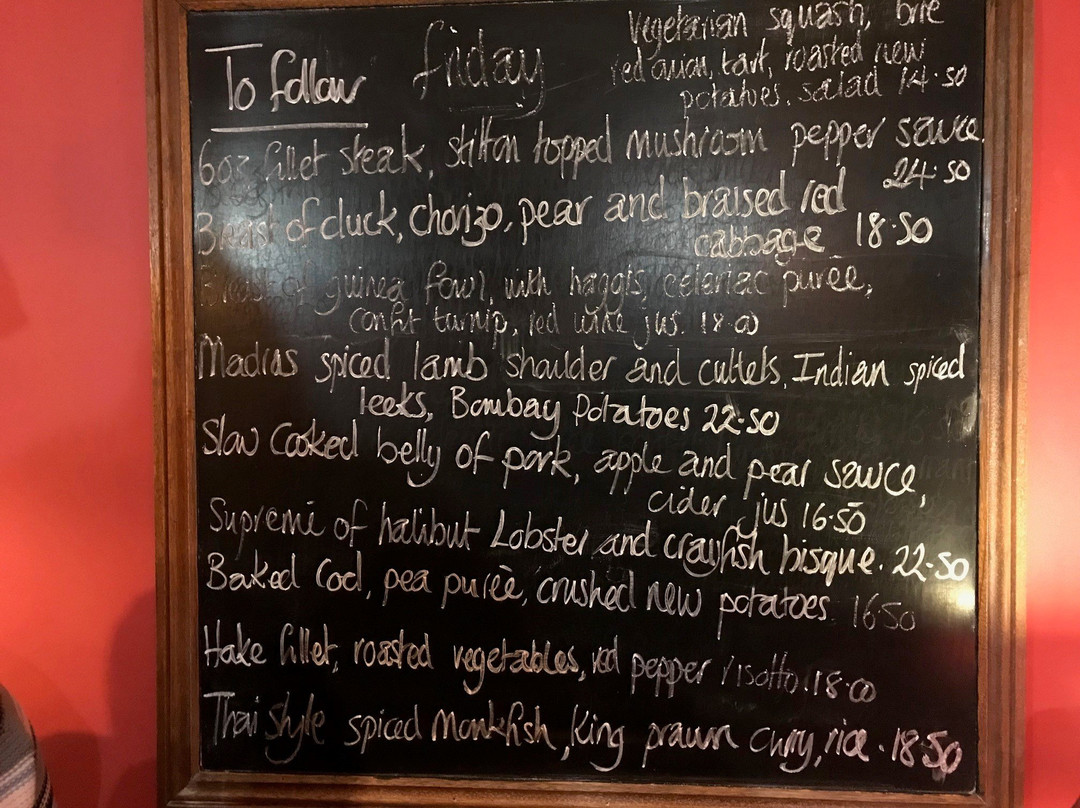 To follow
Friday
Vegetarian squash, brie
red onion, tart, roasted new
potatoes. salad 14.50
6oz fillet steak, stilton topped mushroom pepper sauce.
24.50
Breast of duck, chorizo, pear and braised red
cabbage 18.50
Breast of guinea fowl, with haggis, celeriac purée,
confit turnip, red wine jus. 18.00
Madras spiced lamb shoulder and cutlets, Indian spiced
leeks, Bombay Potatoes 22.50
Slow Cooked belly of pork, apple and pear sauce,
cider jus 16.50
Supreme of halibut Lobster and crayfish bisque. 22.50
Baked Cod, pea purée, crushed new potatoes. 16.50
Hake fillet, roasted vegetables, red pepper risotto. 18.00
Thai Style spiced Monkfish, King prawn curry, rice. 18.50